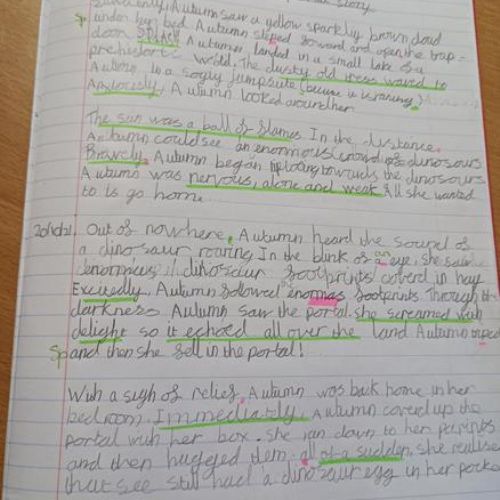 story
Suddenly, Autumn saw a yellow sparkly brown cloud
Sp under her bed Autumn steped forward and open the trap-
door. SPLASH Autumn landed in a small lake of a
prehistoric world. The dusty old trees waved to
Autumn in a soggy jumpsuite (because it is raining)
Anxiously, Autumn looked around her.
The sun was a ball of flames In the distance.
Autumn could see an enormous crowd of dinosaurs
Bravely, Autumn began tiptoeing towards the dinosaurs
Autumn was nervous, alone and weak All she wanted
to is go home.
Out of nowhere, Autumn heard the sound of
a dinosaur roaring In the blink of an eye, she saw
enormous dinosaur footprints coverd in hay
Excitedly, Autumn followed the enormas footprints. Through the
darkness Autumn saw the portal. she screamed with
delight so it echoed all over the land Autumn triped
Sp and then she fell in the portal!
With a sigh of relief, Autumn was back home in her
bedroom. Immediatly, Autumn coverd up the
portal with her box. She ran down to her parents
and then huggeged them. all of a sudden, she realise
that see still had a dinosaur egg in her pocke